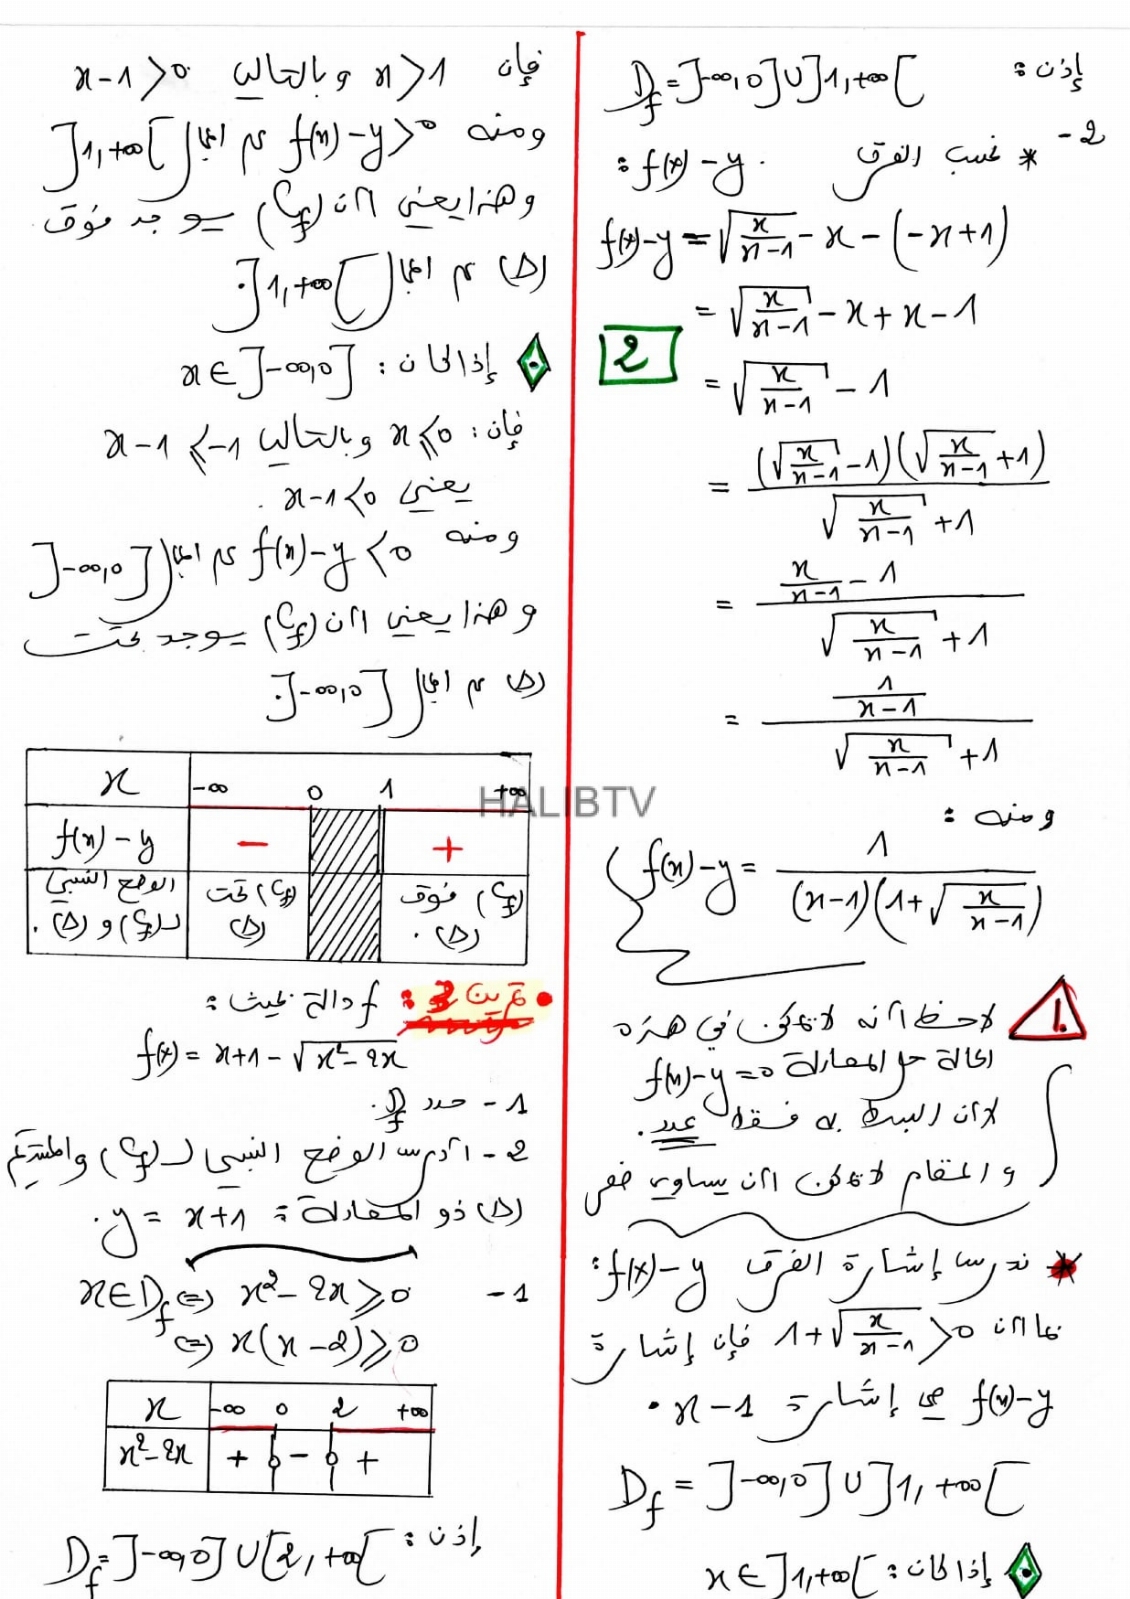 إذن : D_f = ]-∞,0] ∪ ]1,+∞[
2- * نحسب الفرق f(x)-y :
f(x)-y = √(x/(x-1)) - x - (-x+1)
= √(x/(x-1)) - x + x - 1
2
= √(x/(x-1)) - 1
= (√(x/(x-1)) - 1)(√(x/(x-1)) + 1) / (√(x/(x-1)) + 1)
= (x/(x-1) - 1) / (√(x/(x-1)) + 1)
= (1/(x-1)) / (√(x/(x-1)) + 1)
ومنه :
f(x)-y = 1 / ((x-1)(1+√(x/(x-1))))
لاحظ أنه لا يمكن في هذه
الحالة حل المعادلة f(x)-y=0
لأن البسط به فقط عدد .
والمقام لا يمكن أن يساوي
* ندرس إشارة الفرق f(x)-y :
بما أن 1+√(x/(x-1)) > 0 فإن إشارة
f(x)-y هي إشارة x-1 .
D_f = ]-∞,0] ∪ ]1,+∞[
إذا كان : x ∈ ]1,+∞[
فإن x>1 وبالتالي x-1>0
ومنه f(x)-y>0 في المجال ]1,+∞[
وهذا يعني أن (C_f) يوجد فوق
(Δ) في المجال ]1,+∞[ .
إذا كان : x ∈ ]-∞,0]
فإن : x⩽0 وبالتالي x-1⩽-1
يعني x-1<0 .
ومنه f(x)-y<0 في المجال ]-∞,0]
وهذا يعني أن (C_f) يوجد تحت
(Δ) في المجال ]-∞,0] .
x -∞ 0 1 +∞
f(x)-y - +
الوضع النسبي لـ(C_f) و (Δ) . (C_f) تحت (Δ) (C_f) فوق (Δ) .
HALIBTV
• تمرين 3 : f دالة بحيث :
f(x) = x+1 - √(x²-2x)
1- حدد D_f .
2- أدرس الوضع النسبي لـ (C_f) والمستقيم
(Δ) ذو المعادلة : y = x+1 .
1- x∈D_f ⇔ x²-2x ⩾ 0
⇔ x(x-2) ⩾ 0
x -∞ 0 2 +∞
x²-2x + 0 - 0 +
إذن : D_f = ]-∞,0] ∪ [2,+∞[